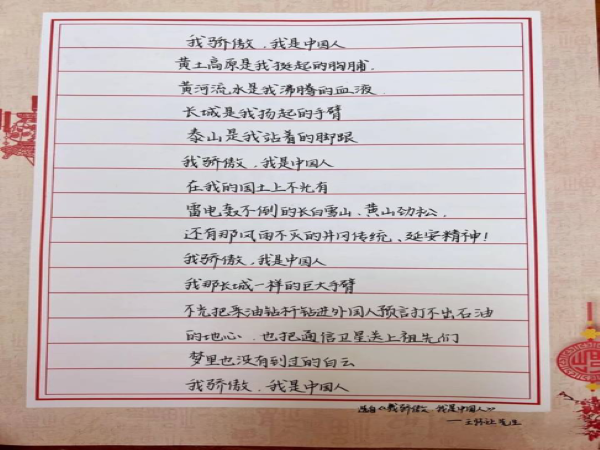 我骄傲，我是中国人
黄土高原是我挺起的胸脯.
黄河流水是我沸腾的血液
长城是我扬起的手臂
泰山是我站着的脚跟
我骄傲，我是中国人
在我的国土上不光有
雷电轰不倒的长白雪山、黄山劲松、
还有那风雨不灭的井冈传统、延安精神！
我骄傲，我是中国人
我那长城一样的巨大手臂
不光把采油钻杆钻进外国人预言打不出石油
的地心，也把通信卫星送上祖先们
梦里也没有到过的白云
我骄傲，我是中国人
选自《我骄傲，我是中国人》
——王怀让先生